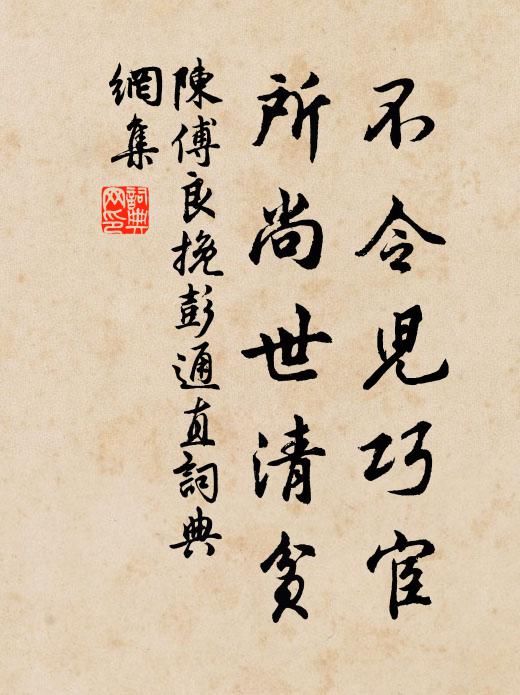 不令児巧宦
所尚世清貧
陳傅良挽彭通直詞典
網集
詞典
网印